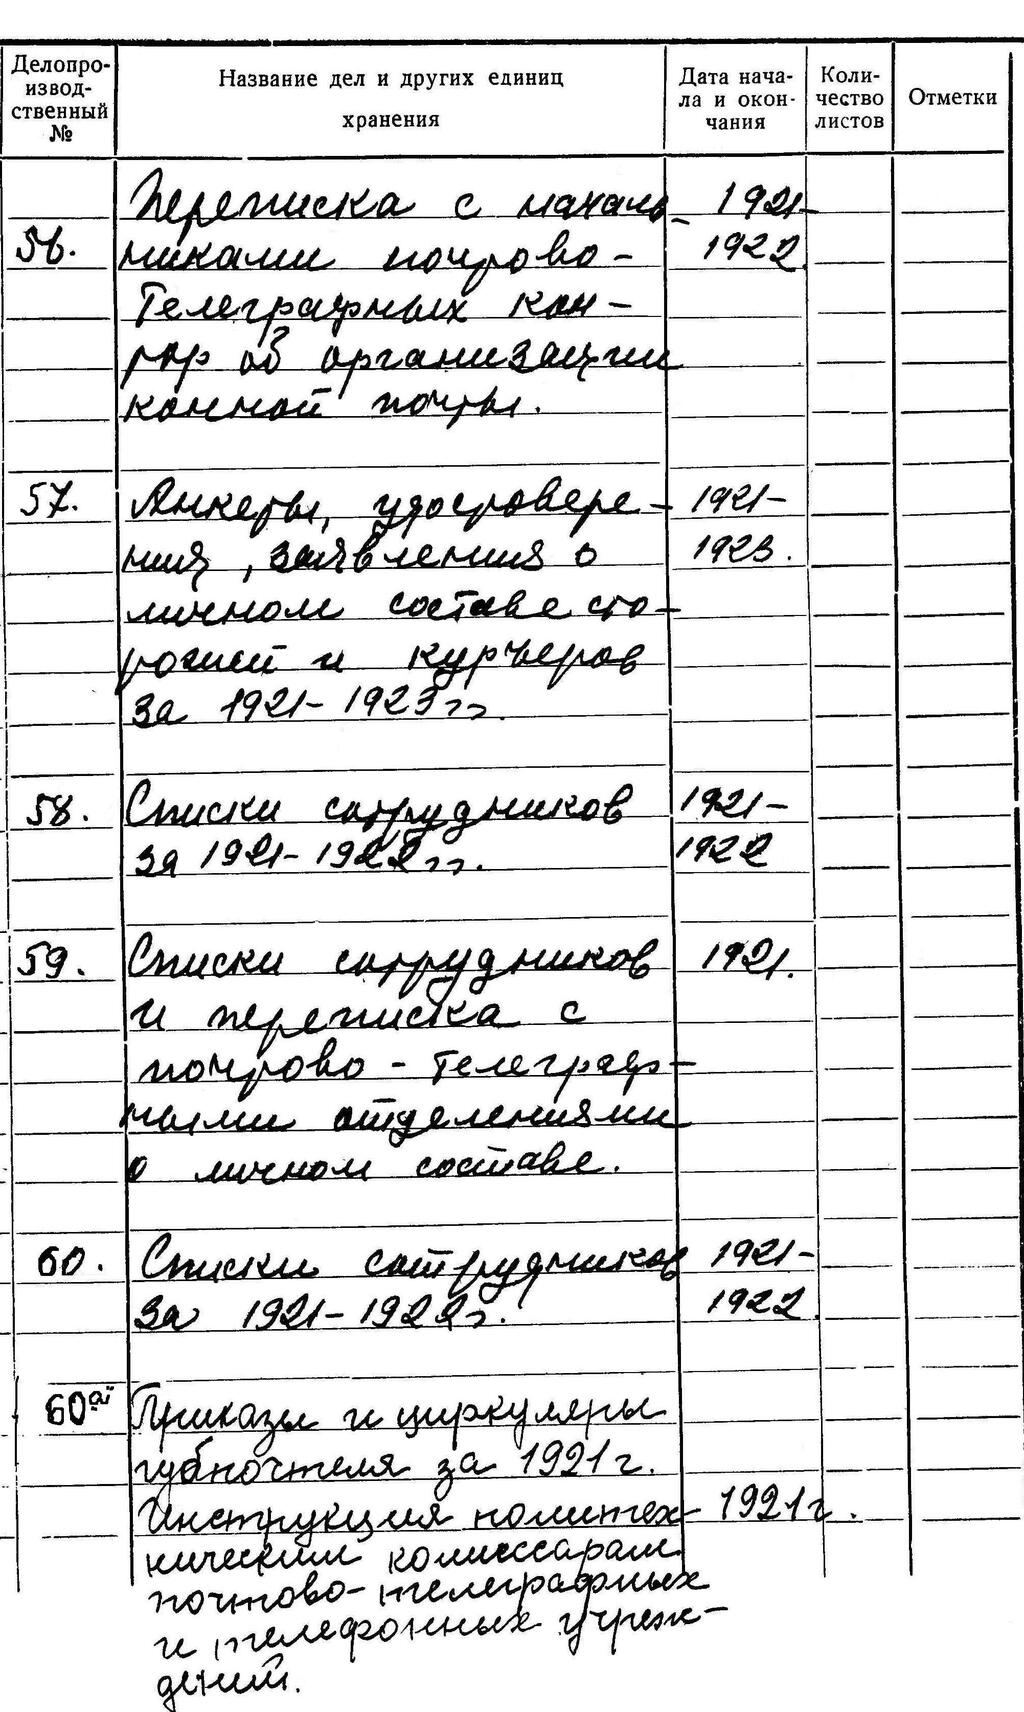 Делопро-
извод-
ственный
№
Название дел и других единиц
хранения
Дата нача-
ла и окон-
чания
Коли-
чество
листов
Отметки
Переписка с началь- 1921-
56. никами почтово- 1922.
Телеграфных кон-
тор об организации
конной почты.
57. Анкеты, удостовере- 1921-
ния, заявления о 1923.
личном составе сто-
рожей и курьеров
за 1921-1923 гг.
58. Списки сотрудников 1921-
за 1921-1922 гг. 1922
59. Списки сотрудников 1921.
и переписка с
почтово-телеграф-
ными отделениями
о личном составе.
60. Списки сотрудников 1921-
за 1921-1922 г. 1922.
60а Приказы и циркуляры
губпочтеля за 1921 г.
Инструкция политех- 1921 г.
ническим комиссарам
почтово-телеграфных
и телефонных учреж-
дений.